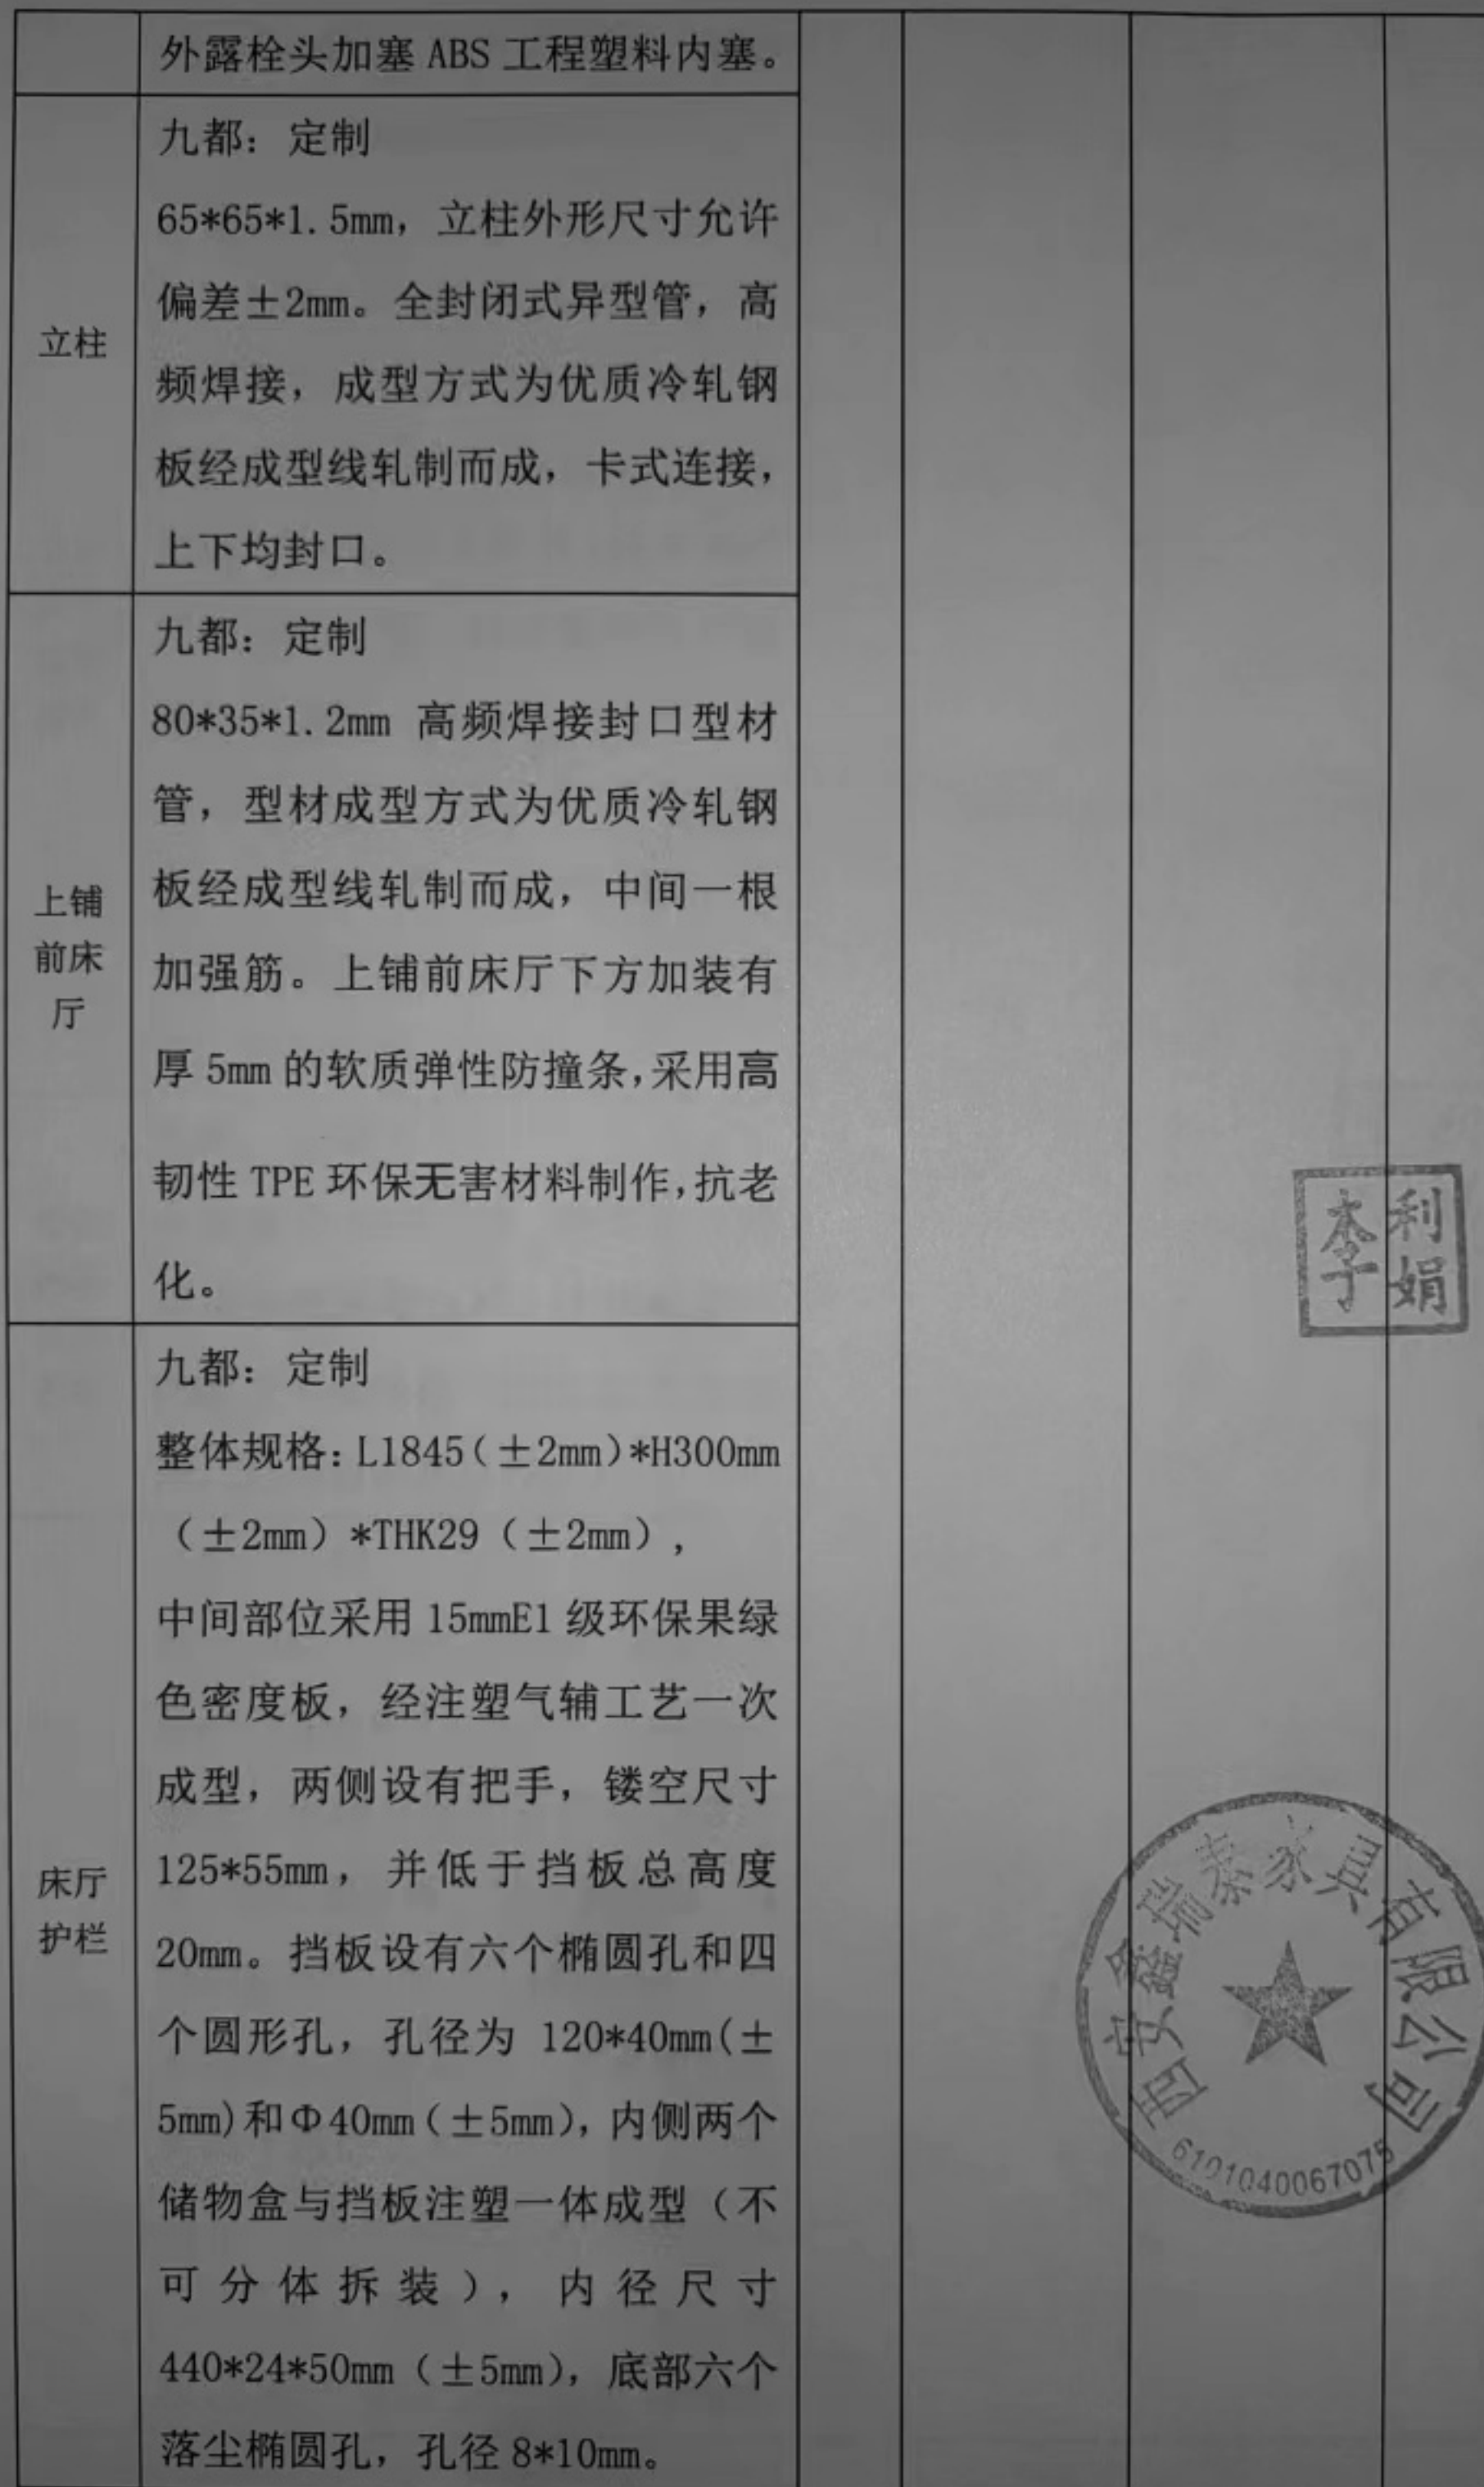 外露栓头加塞 ABS 工程塑料内塞。
立柱
九都：定制
65*65*1.5mm，立柱外形尺寸允许
偏差±2mm。全封闭式异型管，高
频焊接，成型方式为优质冷轧钢
板经成型线轧制而成，卡式连接，
上下均封口。
上铺
前床
厅
九都：定制
80*35*1.2mm 高频焊接封口型材
管，型材成型方式为优质冷轧钢
板经成型线轧制而成，中间一根
加强筋。上铺前床厅下方加装有
厚 5mm 的软质弹性防撞条，采用高
韧性 TPE 环保无害材料制作，抗老
化。
床厅
护栏
九都：定制
整体规格：L1845（±2mm）*H300mm
（±2mm）*THK29（±2mm），
中间部位采用 15mmE1 级环保果绿
色密度板，经注塑气辅工艺一次
成型，两侧设有把手，镂空尺寸
125*55mm，并低于挡板总高度
20mm。挡板设有六个椭圆孔和四
个圆形孔，孔径为 120*40mm(±
5mm)和Φ40mm（±5mm），内侧两个
储物盒与挡板注塑一体成型（不
可分体拆装），内径尺寸
440*24*50mm（±5mm），底部六个
落尘椭圆孔，孔径 8*10mm。
李利娟
西安鑫瑞泰家具有限公司
6101040067075